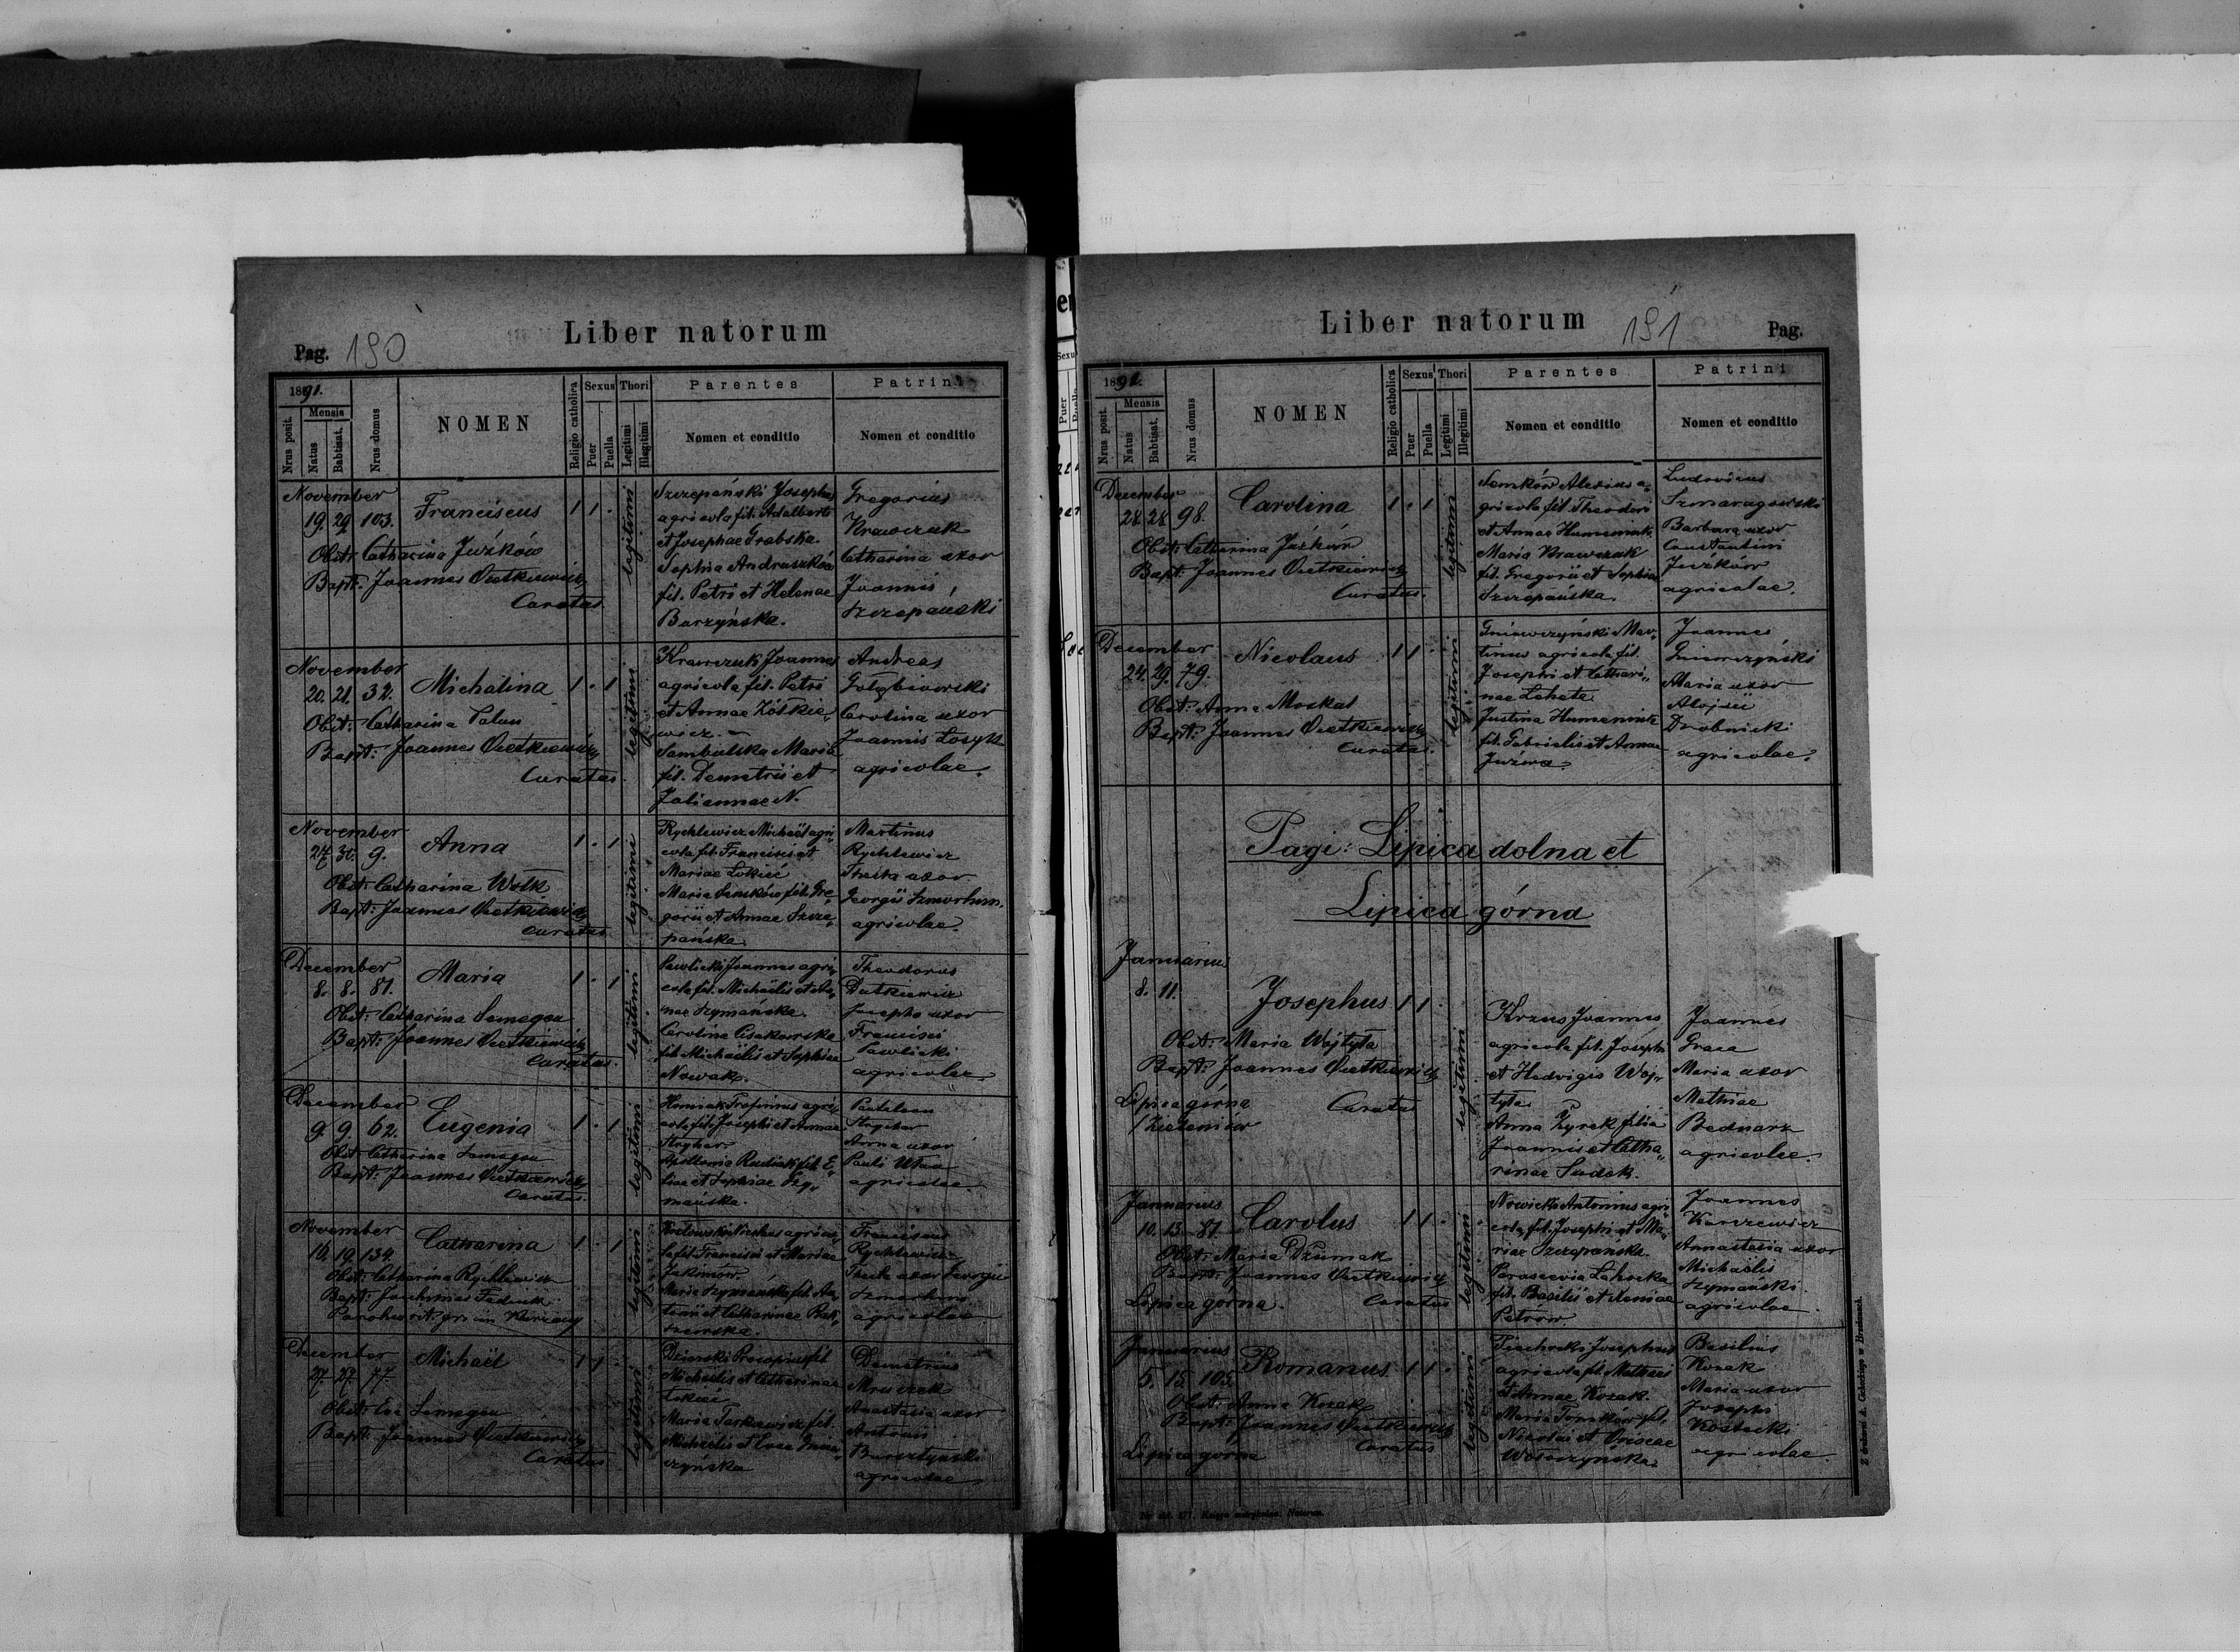 Liber natorum
Pag. 190
1891.
Nrus posit.
Mensis
Natus
Babtisat.
Nrus domus
NOMEN
Religio catholica
Sexus
Puer
Puella
Thori
Legitimi
Illegitimi
Parentes
Nomen et conditio
Patrini
Nomen et conditio
November
19. 29. 103. Franciscus 1 1 . legitimi
Obst: Catharina Juźków
Bapt: Joannes Dietkiewicz
Curatus.
Szczepański Josephus
agricola fil. Adalberti
et Josephae Grabska.
Sophia Andruszków
fil. Petri et Helenae
Burzyńska.
Gregorius
Krawczuk
Catharina uxor
Joannis
Szczepański
November
20. 21. 32. Michalina 1 . 1 legitimi
Obst: Catharina
Bapt: Joannes Dietkiewicz
Curatus.
Krawczuk Joannes
agricola fil. Petri
et Annae Żółkie„
wicz.
Sambulska Maria
fil. Demetrii et
Juliannae N.
Andreas
Gołębiowski
Carolina uxor
Joannis Łosyk
agricolae.
November
27. 30. 9. Anna 1 . 1 legitimi
Obst: Catharina Wołk
Bapt: Joannes Dietkiewicz
Curatus
Rychlewicz Michaël agri„
cola fil. Francisci et
Mariae Łokieć
Maria Semków fil. Gre„
gorii et Annae Szcze„
pańska.
Martinus
Rychlewicz
Thecla uxor
Georgii
agricolae.
December
8. 8. 81. Maria 1 . 1 legitimi
Obst: Catharina Semegen
Bapt: Joannes Dietkiewicz
Curatus.
Pawlicki Joannes agri„
cola fil. Michaëlis et An„
nae Szymańska.
Carolina
fil. Michaëlis et Sophiae
Nowak.
Theodorus
Dutkiewicz
Josepha uxor
Francisci
Pawlicki
agricolae.
December
9. 9. 62. Eugenia 1 . 1 legitimi
Obst: Catharina Semegen
Bapt: Joannes Dietkiewicz
Curatus.
Trofimus agri„
cola fil. Josephi et Annae
Apollonia Rudiak fil. E„
liae et Sophiae Szy„
mańska.
Anna uxor
Pauli
agricolae.
November
10. 19. 134. Catharina 1 . 1 legitimi
Obst: Catharina Rychlewicz
Bapt: Joachimus
Parochus rit. gr. in
agrico„
la fil. Francisci et Mariae
Jakimów.
Maria Szymańska fil. An„
tonii et Catharinae
Franciscus
Rychlewicz
Thecla uxor Georgii
agricolae
December
27. 27. 77. Michaël 1 1 . legitimi
Obst: Eva Semegen
Bapt: Joannes Dietkiewicz
Curatus
Procopius fil.
Michaëlis et Catharinae
Łokieć
Maria fil.
Michaëlis et Evae
Demetrius
Mruczek
Anastasia uxor
Antonii
Bursztyński
agricolae.
Liber natorum
191 Pag.
1891.
Nrus posit.
Mensis
Natus
Babtisat.
Nrus domus
NOMEN
Religio catholica
Sexus
Puer
Puella
Thori
Legitimi
Illegitimi
Parentes
Nomen et conditio
Patrini
Nomen et conditio
December
28. 28. 98. Carolina 1 . 1 legitimi
Obst: Catharina Juźków
Bapt: Joannes Dietkiewicz
Curatus.
Semków Alexius a„
gricola fil. Theodori
et Annae Humeniuk.
Maria Krawczuk
fil. Gregorii et Sophiae
Szczepańska.
Ludovicus
Szmaragowski
Barbara uxor
Constantini
Juźków
agricolae.
December
24. 29. 79. Nicolaus 1 1 . legitimi
Obst: Anna Moskal
Bapt: Joannes Dietkiewicz
Curatus.
Gniewczyński Mar„
tinus agricola fil.
Josephi et Cathari„
nae
Justina Humeniuk
fil. Gabrielis et Annae
Juźwa.
Joannes
Gniewczyński
Maria uxor
Aloisii
Drobnicki
agricolae.
Pagi: Lipica dolna et
Lipica górna
Januarius
8. 11. Josephus 1 1 . legitimi
Obst: Maria Wojtyta
Bapt: Joannes Dietkiewicz
Lipica górna Curatus
Krzus Joannes
agricola fil. Josephi
et Hedvigis Woj„
tyta
Anna Zyrek filia
Joannis et Catha„
rinae Sudek.
Joannes
Graca
Maria uxor
Mathiae
Bednarz
agricolae.
Januarius
10. 13. 81. Carolus 1 1 . legitimi
Obst: Maria Dziumak
Bapt: Joannes Dietkiewicz
Lipica górna. Curatus
Nowicki Antonius agri„
cola fil. Josephi et Ma„
riae Szczepańska.
Parascevia
fil. Basilii et Xeniae
Petrów.
Joannes
Karczewicz
Annastasia uxor
Michaëlis
Szymański
agricolae.
Januarius
5. 15. 105. Romanus 1 1 . legitimi
Obst: Anna Kozak
Bapt: Joannes Dietkiewicz
Curatus
Lipica górna
Josephus
agricola fil. Mathaei
et Annae Kozak.
Maria Tomków fil.
Nicolai et
Wołoszyńska.
Basilius
Kozak
Maria uxor
Josephi
Kostecki
agricolae.